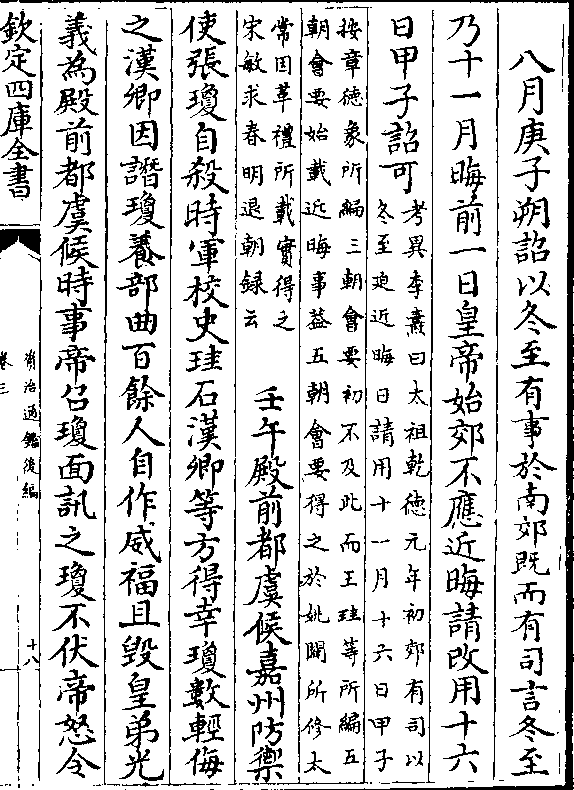 八月庚子朔詔以冬至有事於南郊既而有司言冬至
乃十一月晦前一日皇帝始郊不應近晦請改用十六
日甲子詔可
考異李燾曰太祖乾德元年初郊有司以
冬至廹近晦日請用十一月十六日甲子
按章徳象所編三朝會要初不及此而王珪等所編五
朝會要始載近晦事葢五朝會要得之於姚闢所修太
常因革禮所載實得之
宋敏求春明退朝録云
壬午殿前都虞候嘉州防禦
使張瓊自殺時軍校史珪石漢卿等方得幸瓊數輕侮
之漢卿因譖瓊養部曲百餘人自作威福且毀皇弟光
義為殿前都虞候時事帝召瓊面訊之瓊不伏帝怒令
欽定四庫全書
資治通鑑後編
卷三
十八